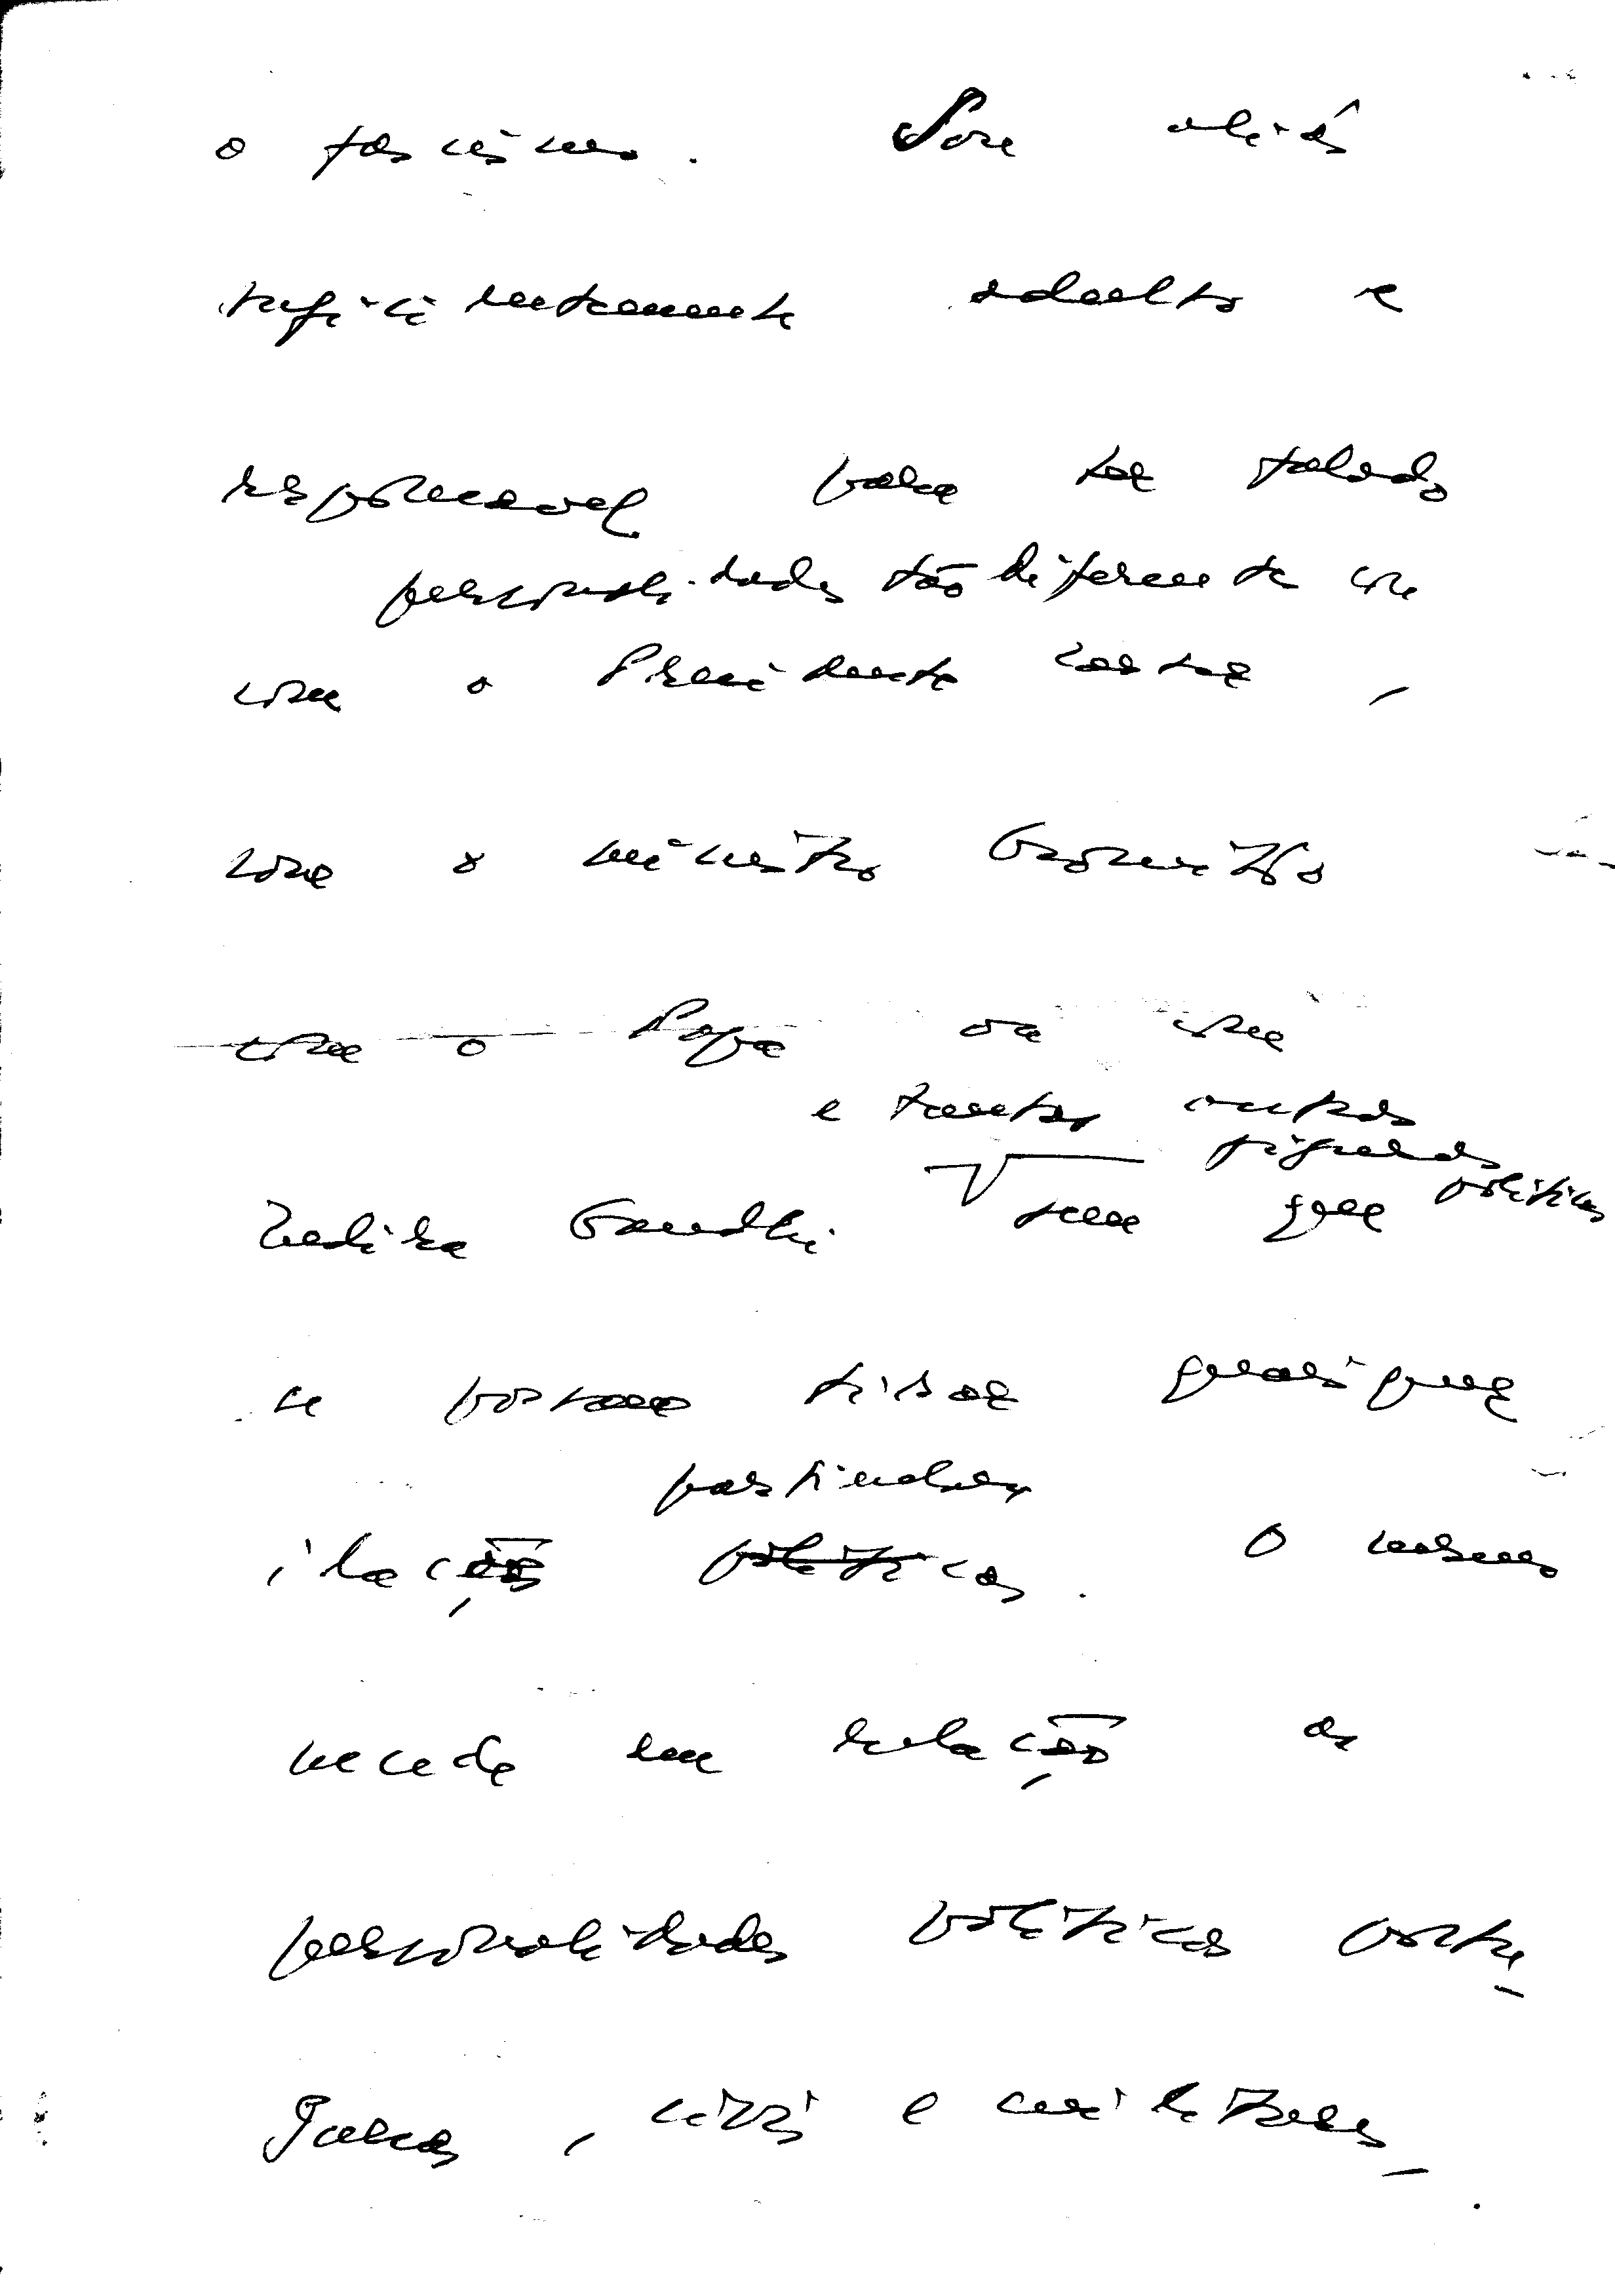 o fascismo. Sou aliás
suficientemente adulto e
responsavel para ter falado
personalidades tão diferentes como
com o Presidente Carter,
com o ministro Gromiko
com o Papa ou com
e tantas outras
figuras políticas
Indira Gandhi sem que
se possam tirar quaisquer
partidárias
ilações políticas. O mesmo
sucede em relação as
personalidades politicas portu-
guesas, civis e militares_.